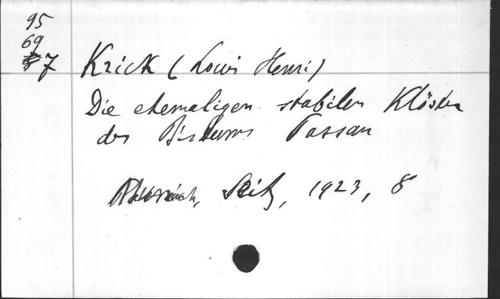 95
69
7
Krick (Louis Henri)
Die ehemaligen stabilen Klöster
des Bistums Passau
Seitz, 1923, 8